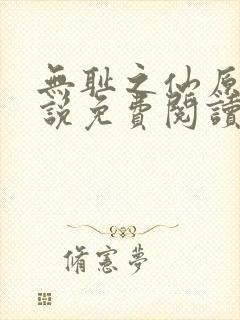 無耻之仙原
說免費閱讀
脩憲夢